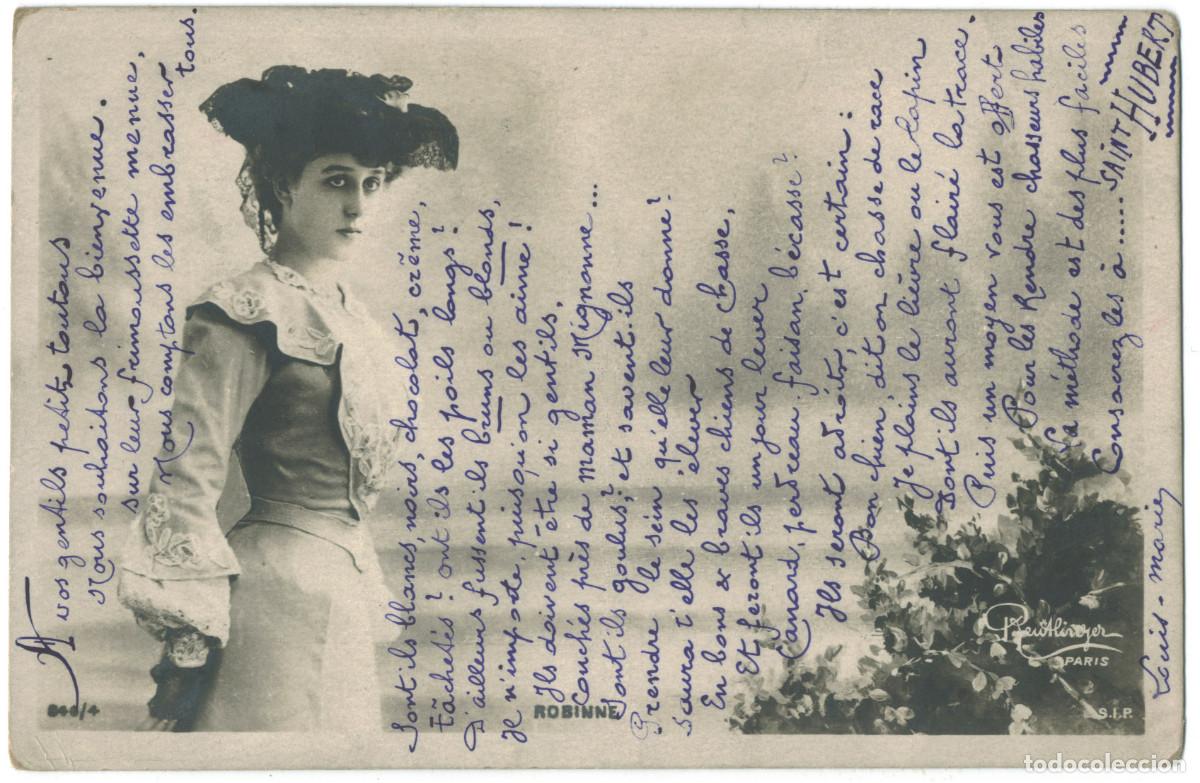 A vos gentils petits toutous
Nous souhaitons la bienvenue.
sur leur frimoussette menue,
Nous comptons les embrasser
tous.
Sont ils blancs, noirs, chocolat, crême,
tâchetés? ont ils les poils longs?
D'ailleurs fussent ils bruns ou blonds,
Je n'impote, puisqu'on les aime!
Ils doivent être si gentils,
Couchés près de maman Mignonne...
Sont ils goulus; et savent ils
Prendre le sein qu'elle leur donne?
saura t'elle les élever
En bons & braves chiens de chasse,
Et feront ils un jour lever
Canard, perdreau faisan, bécasse?
Ils seront adroits, c'est certain:
Bon chien, dit on chasse de race
Je plains le lièvre ou le lapin
Dont ils auront flairé la trace.
Puis un moyen vous est offert
Pour les Rendre chasseurs habiles
La méthode est des plus faciles
Consacrez les à..... SAINT HUBERT
Louis-marie
846/4
ROBINNE
Reutlinger
PARIS
S.I.P.
todocoleccion